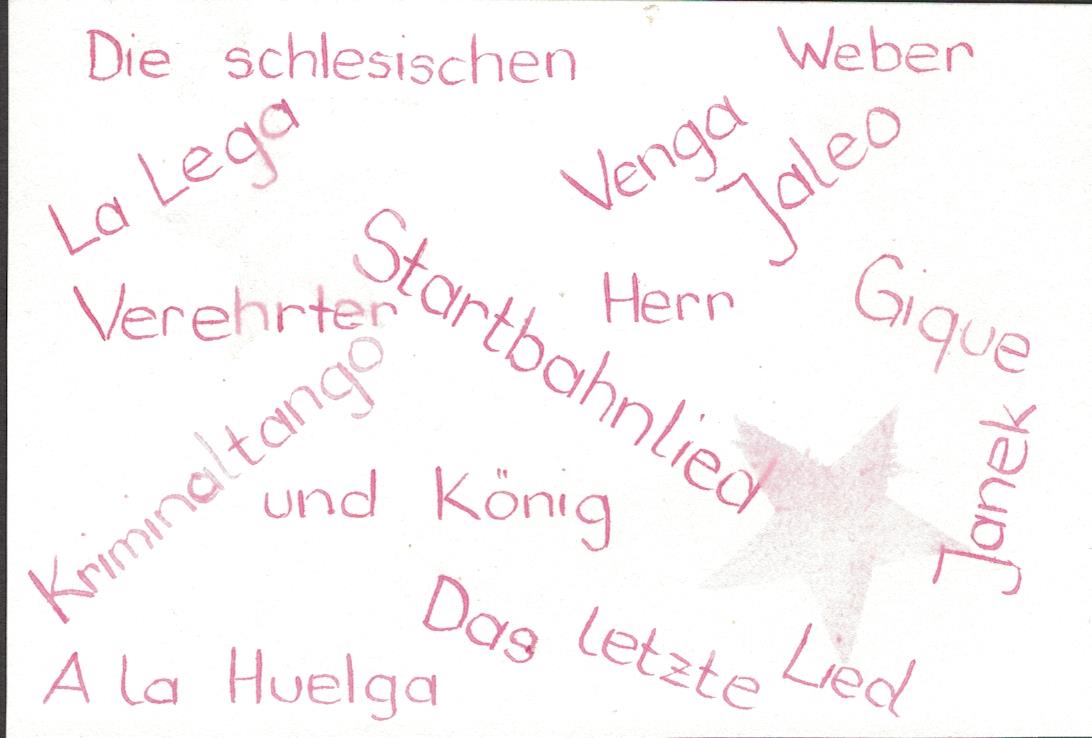 Die schlesischen Weber
La Lega
Venga Jaleo
Startbahnlied
Verehrter Herr
und König
Gique
Kriminaltango
Janek
Das letzte Lied
A la Huelga